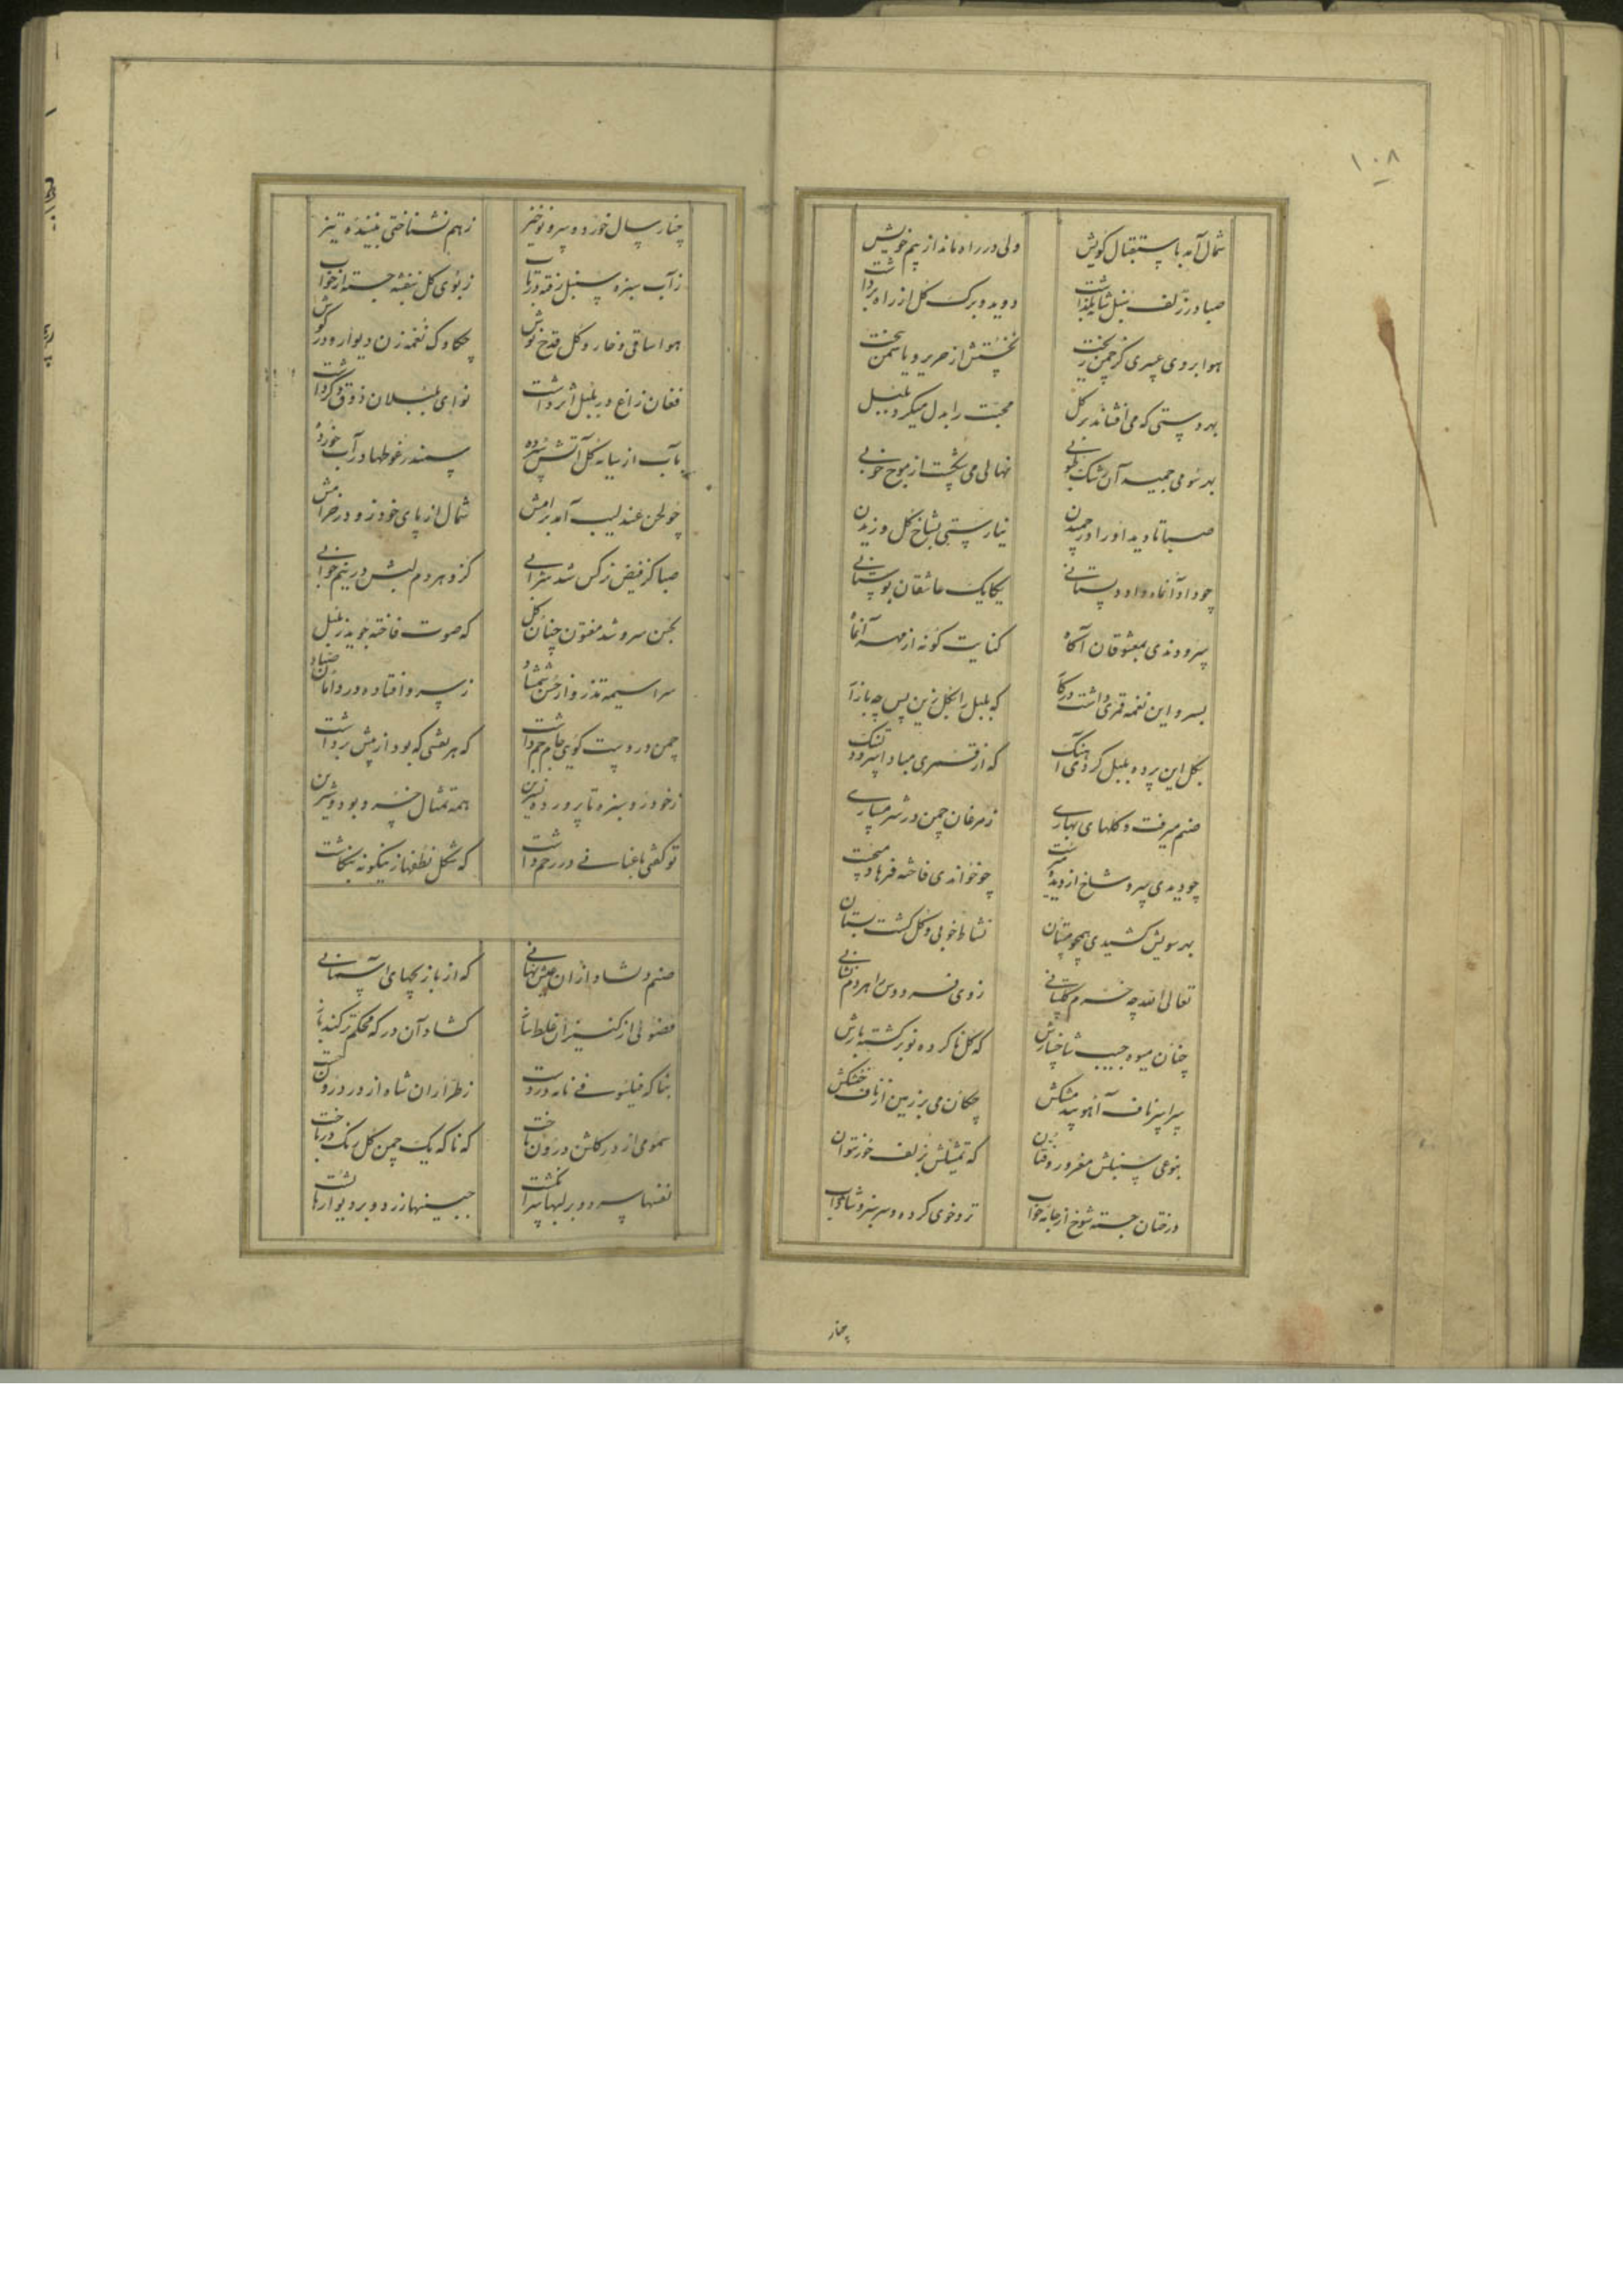 ۱۰۸
شمال آمد باستقبال کویش
ولی در راه ماند از بیم خویش
صبا در زلف سنبل شانه بگذاشت
دوید و برک کل از راه برداشت
هوا بر روی
نخستش از حریر و یاسمن بیخت
بهر دستی که می افشاند بر کل
محبت را بدل میکرد بلبل
بهر سو می چمید آن رشک طوبی
نهالی می از موج خوبی
صبا تا دید او را در چمیدن
نیارستی بشاخ کل وزیدن
چو داد آنماه داد دلستانی
یکایک عاشقان بوستانی
سرودندی بمعشوقان آکاه
کنایت کونه از مهر آنماه
بسرو این نغمه قمری داشت در کار
که بلبل را بکل زین پس چه بازار
بکل این پرده بلبل کردی آهنک
که از قمری مبادا سرو دلتنک
صنم میرفت و کلهای بهاری
ز مرغان چمن در شرمساری
چو دیدی سرو شاخ از دیده
چو خواندی فاخته فریاد
بهر سویش کشیدی همچو مستان
نشاط خوبی و کل کشت بستان
تعالی الله چه خرم کلستانی
ز وی فردوس را هر دم نشانی
چنان میوه بجیب شاخسارش
که کل ناکرده نو برکشته بارش
سراسر ناف آهو بید مشکش
چکان می بر زمین از تاک خشکش
بنوعی سنبلش مغرور و فتان
که تمثیلش بزلف حور نتوان
درختان جسته شوخ از جامه خواب
تر و خوی کرده و سرسبز و شاداب
چنار
چنار سال خورد و سرو نوخیز
ز هم نشناختی بیننده تیز
ز آب سبزه سنبل رفته در تاب
ز بوی کل بنفشه جسته از خواب
هوا ساقی و خار و کل قدح نوش
چکاوک نغمه زن دیوار و در کوش
فغان زاغ در بلبل اثر داشت
نوای بلبلان ذوق دکر داشت
بآب از سایه کل آتش سپرده
سمندر غوطها در آب خورده
چو لحن عندلیب آمد برامش
شمال از پای خود زو در خرامش
صبا کز فیض نرکس شد شرابی
کزو هر دم لبش در نیم خوابی
بحسن سرو شد مفتون چنان کل
که صوت فاخته جوید ز بلبل
سراسیمه تذرو از حسن شمشاد
ز سرو افتاده دور دامان صیاد
چمن در دست کویی جام جم داشت
که هر نقشی که بود از پیش برداشت
ز خود رو سبزه تا پرورده نسرین
همه تمثال خسرو بود و شیرین
تو کفتی باغبانی در رحم داشت
که شکل نطفها زینکونه بنکاشت
صنم دلشاد از آن عیش نهانی
که از بازیچهای آسمانی
فضولی از کنیزان غلط باز
کشاد آن در که محکم تر کند باز
بناکه فیلسوفی نادرست
ز طراران شاه از در درون
سمومی از در کلشن درون تاخت
که ناکه یک چمن کل رنک در باخت
نفسها سرد و بر لبها پر انکشت
جبینها زرد و بر دیوارها پشت